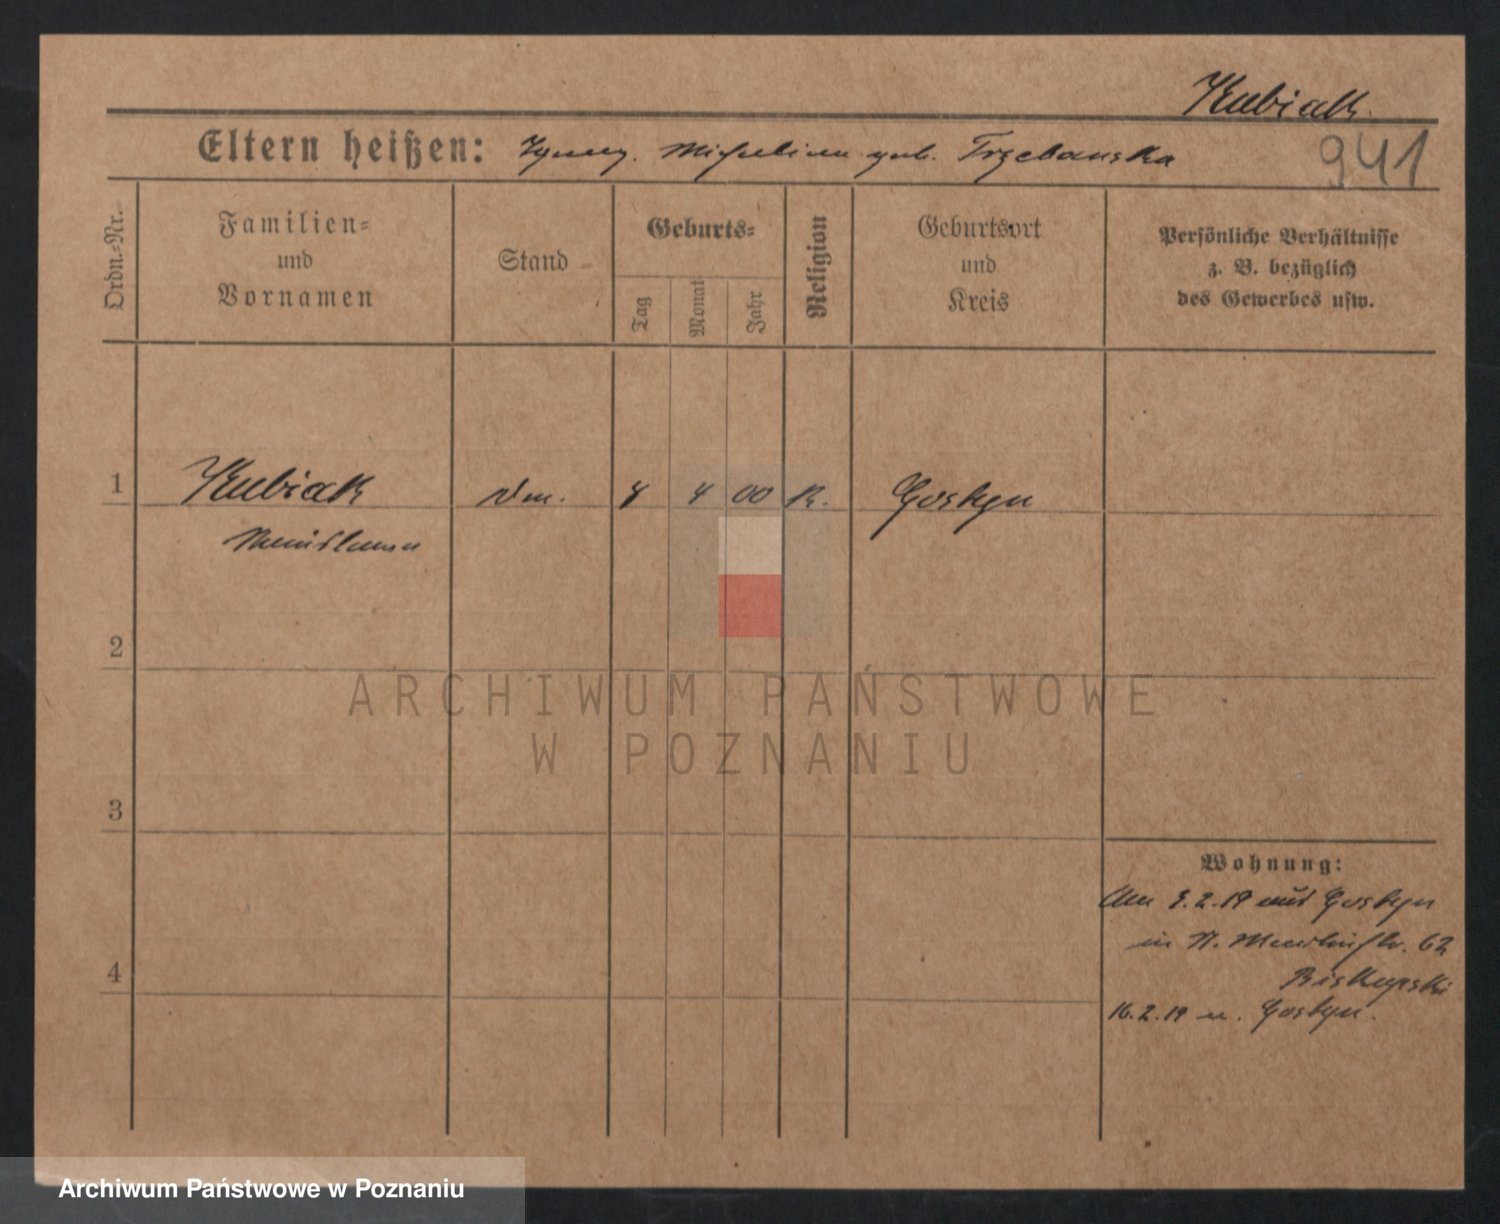 Kubiak
Eltern heißen: Ignacy. Michalina geb. Trzebanska
941
Ordn.-Nr.
Familien-
und
Vornamen
Stand
Geburts-
Tag
Monat
Jahr
Religion
Geburtsort
und
Kreis
Persönliche Verhältnisse
z. B. bezüglich
des Gewerbes usw.
1
Kubiak
4 00 K.
Gostyn
2
ARCHIWUM PAŃSTWOWE
W POZNANIU
3
4
Wohnung:
Am 3.2.19 aus Gostyn
in 62
Biskupski
16.2.19 n. Gostyn.
Archiwum Państwowe w Poznaniu